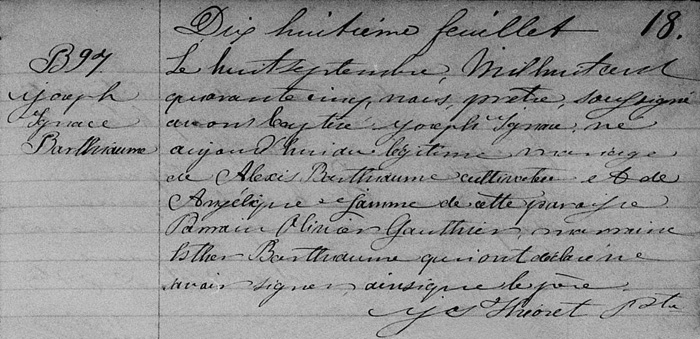 Dix huitième feuillet 18.
B97
Joseph
Ignace
Barthiaume
Le huit septembre, Mil huit cent
quarante cinq, nous, prêtre, soussigné
avons baptisé Joseph Ignace, né
aujourd'hui du légitime mariage
de Alexis Barthiaume cultivateur et de
Angélique femme de cette paroisse
Parrain Olivier Gauthier marraine
Esther Barthiaume qui ont déclaré ne
savoir signer ainsi que le père.